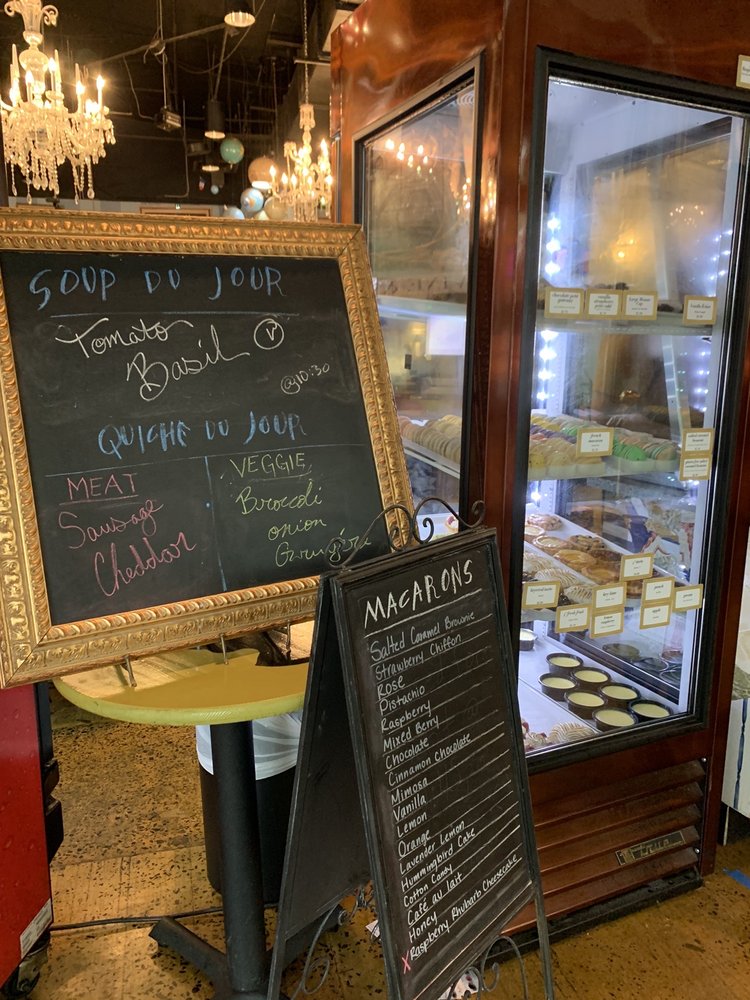 SOUP DU JOUR
Tomato
Basil V
@10:30
QUICHE DU JOUR
MEAT
Sausage
Cheddar
VEGGIE
Broccoli
onion
Gruyère
MACARONS
Salted Caramel Brownie
Strawberry Chiffon
Rose
Pistachio
Raspberry
Mixed Berry
Chocolate
Cinnamon Chocolate
Mimosa
Vanilla
Lemon
Orange
Lavender Lemon
Hummingbird Cake
Cotton Candy
Café au lait
Honey
X Raspberry Rhubarb Cheesecake
french
macaron
true